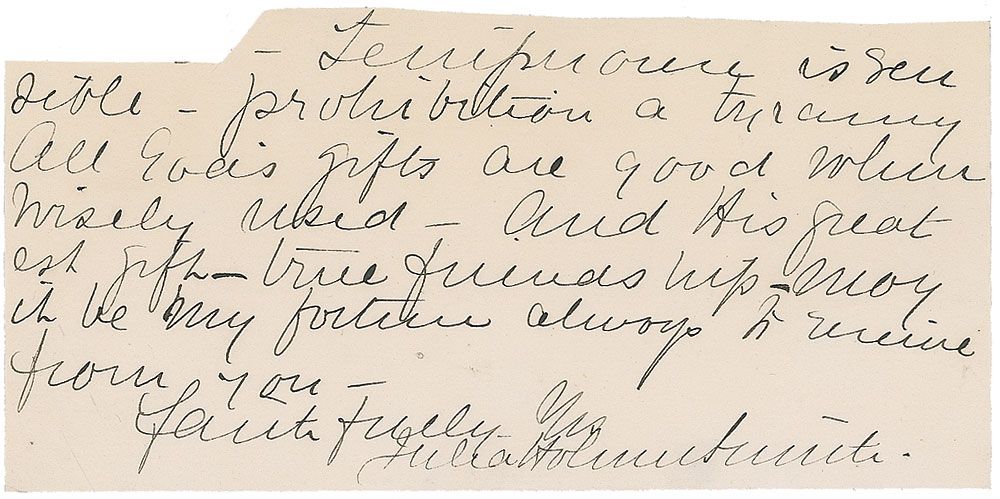 - Temperance is sen
sible - prohibition a tyranny
All God's gifts are good when
wisely used - And His great
est gift - true friendship - may
it be my fortune always to receive
from you -
Faithfully Yrs
Julia Holmes Smith.